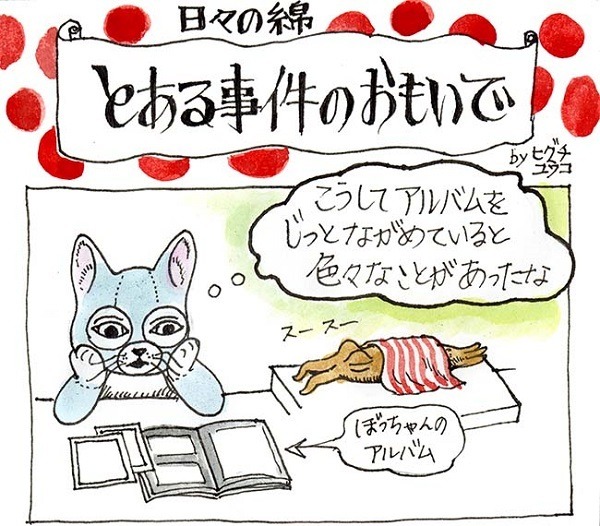 日々の綿
とある事件のおもいで
by ヒグチ
ユウコ
こうしてアルバムを
じっとながめていると
色々なことがあったな
スー スー
ぼっちゃんの
アルバム